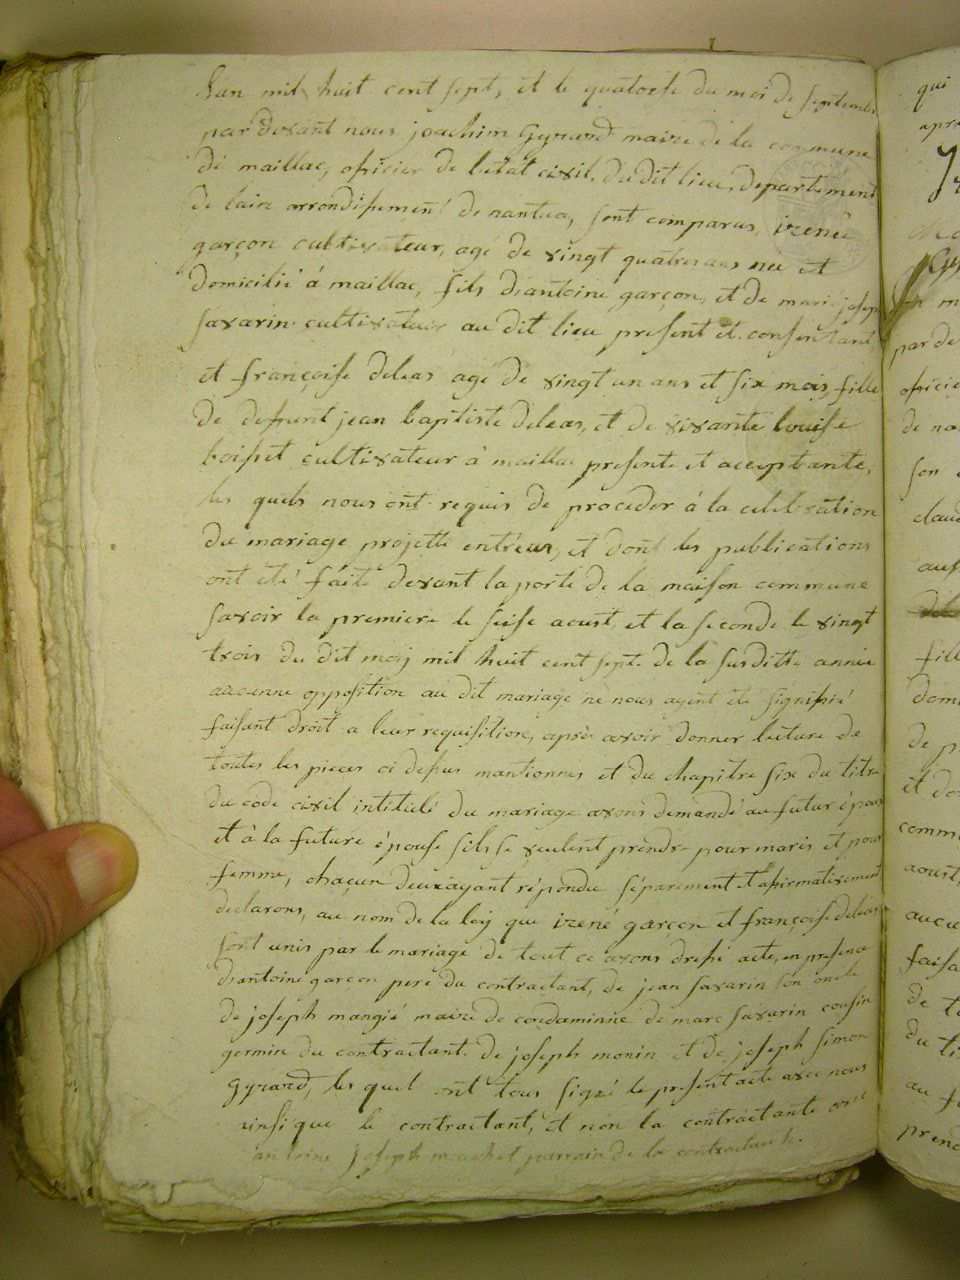 Lan mil huit cent sept, et le quatorse du moi de septembre
par devant nous joachim Gyrard maire de la commune
de maillac, officier de letat civil du dit lieu, departement
de lain arrondissement de nantua, sont comparus, irené
garçon cultivateur, agé de vingt quatre ans neé et
domicilié á maillac, fils d'antoine garçon, et de marie joseph
savarin cultivateur au dit lieu present et consentant
et françoise deleas agé de vingt un ans et six mois, fille
de defunt jean baptiste deleas, et de vivante louise
boisset cultivateur á maillac presente et acceptante,
les quels nous ont requis de proceder á la celebration
du mariage projetté entreux, et dont les publications
ont eté faite devant la porte de la maison commune
savoir la premiere le seise aoust, et la seconde le vingt
trois du dit moij mil huit cent sept de la susditte année
aucunne opposition au dit mariage ne nous ayent eté signifié
faisant droit a leur requisition, apré avoir donner lecture de
toutes les pieces ci dessus mantionnés et du chapitre six du titre
du code civil intitulé du mariage avons demandé au futur époux
et á la future épouse sils se veulent prendre pour maris et pour
femme, chaçun deux ayant répondu séparement et afirmativement
declarons, au nom de la loy que irené garçon et françoise deleas
sont unis par le mariage de tout ce avons dressé acte, en presence
d'antoine garçon pere du contractant, de jean savarin son oncle
de joseph mangié maire de condaminne de marc savarin cousin
germin du contractant. de joseph monin et de joseph simon
gyrard, les quel ont tous signé le present acte avec nous
ainsi que le contractant, et non la contractante
antoine joseph machet parrain de la contractante.
qui
par de
officie
de na
son
clau
aus
fill
dom
de p
et do
comm
aoust,
aucu
faisa
de to
du ti
au fu
prend